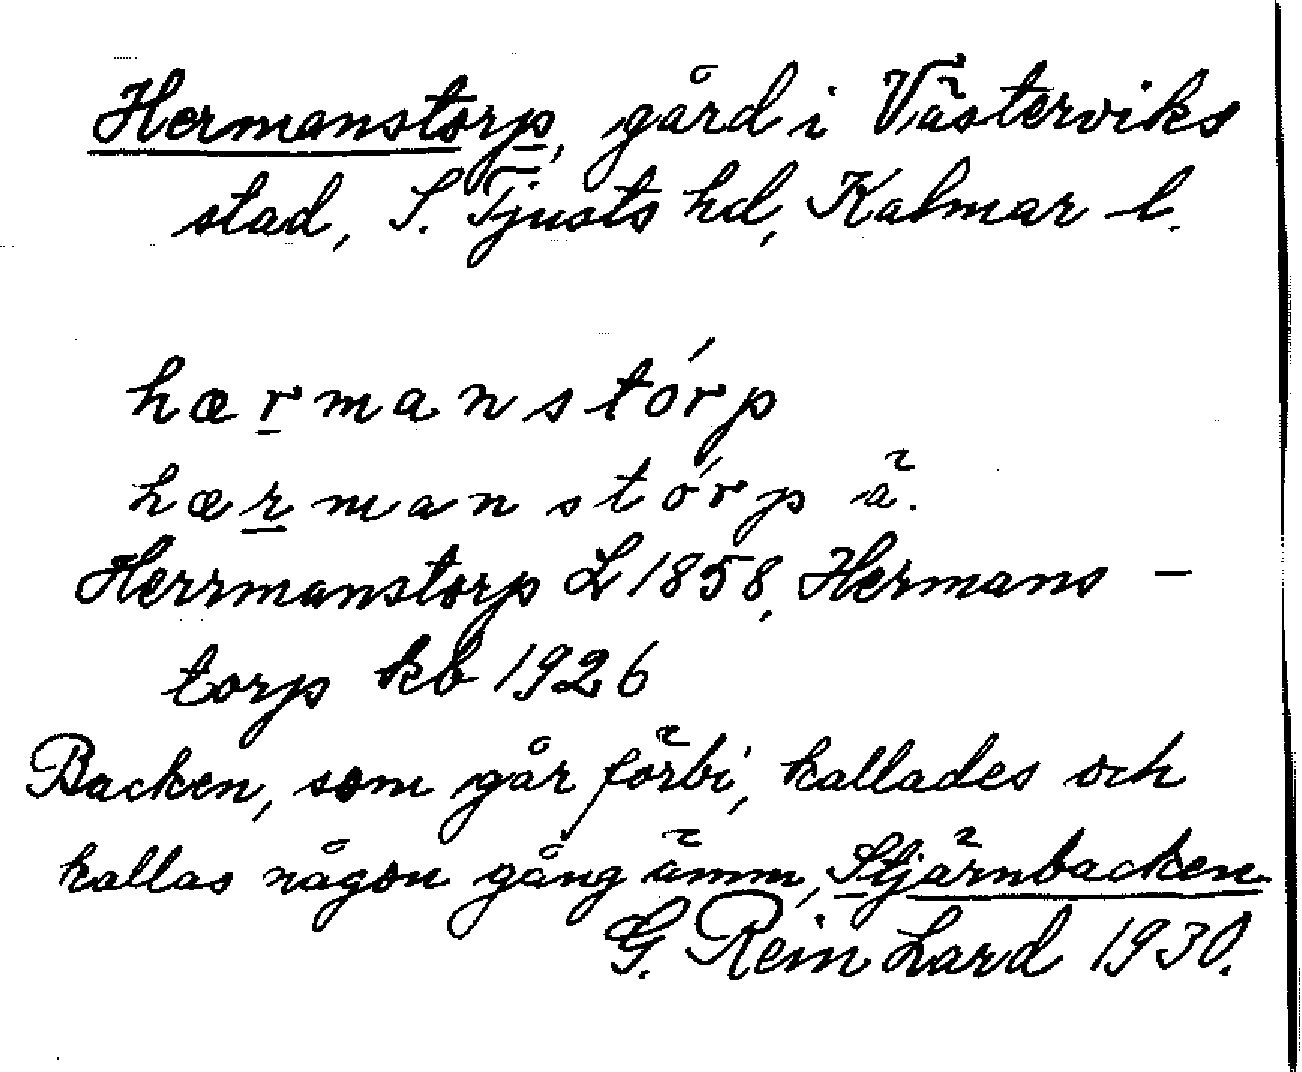 Hermanstorp, gård i Västerviks
stad, S. Tjusts hd, Kalmar l.
hærmanstórp
hærmanstórp ä.
Herrmanstorp L 1858, Hermans-
torp kb 1926
Backen, som går förbi, kallades och
kallas någon gång ämm, Stjärnbacken
G. Rein Lard 1930.